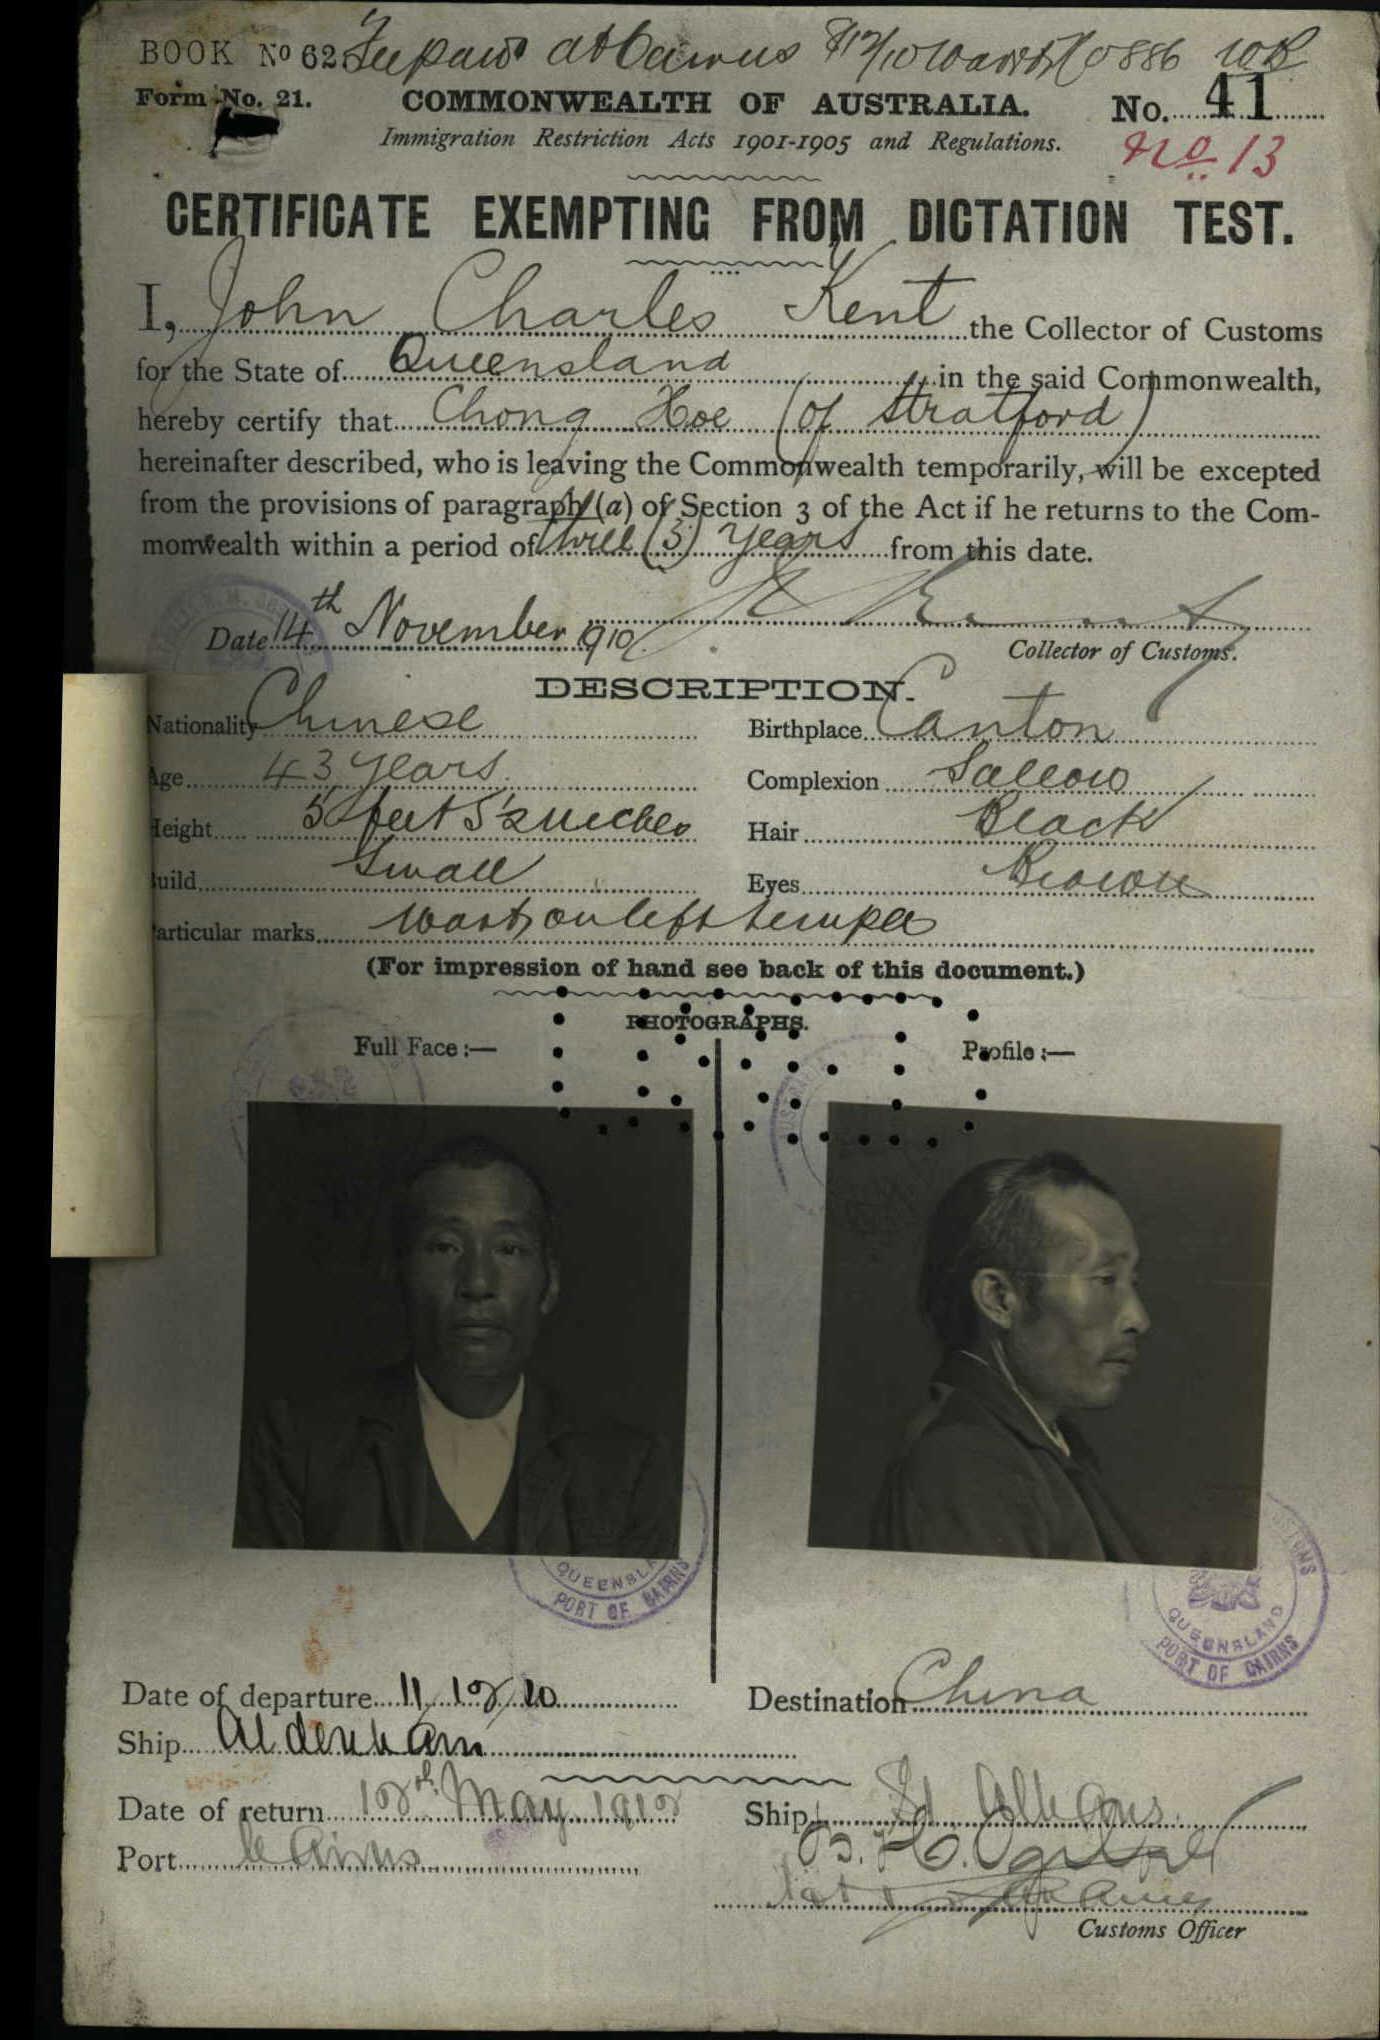 BOOK No 62 Fee paid at Cairns
Form No. 21. COMMONWEALTH OF AUSTRALIA. No. 41
Immigration Restriction Acts 1901-1905 and Regulations. No 13
CERTIFICATE EXEMPTING FROM DICTATION TEST.
I, John Charles Kent the Collector of Customs
for the State of Queensland in the said Commonwealth,
hereby certify that Chong Hoe (of Stratford)
hereinafter described, who is leaving the Commonwealth temporarily, will be excepted
from the provisions of paragraph (a) of Section 3 of the Act if he returns to the Com-
monwealth within a period of three (3) years from this date.
Date 14th November 1910.
Collector of Customs.
DESCRIPTION.
Nationality Chinese Birthplace Canton
Age 43 years. Complexion Sallow
Height 5 feet 5½ inches Hair Black
Build Small Eyes Brown
Particular marks Wart on left temple
(For impression of hand see back of this document.)
PHOTOGRAPHS.
Full Face:— Profile:—
QUEENSLAND
PORT OF CAIRNS
QUEENSLAND
PORT OF CAIRNS
Date of departure 11/12/10 Destination China
Ship Aldenham
Date of return 12th May 1912 Ship St Albans.
Port Cairns
Customs Officer